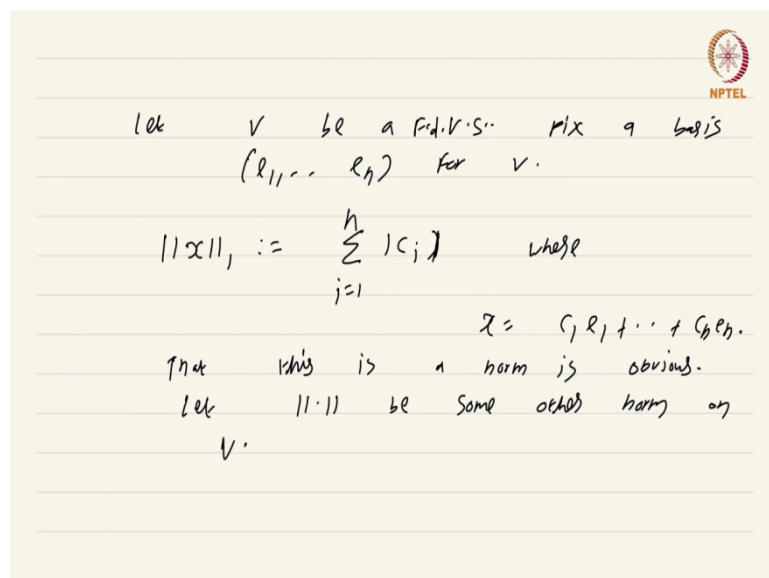 NPTEL
let V be a F.d.V.S. Fix a basis
(e1, .. en) for V.
||x||1 := n∑j=1 |cj| where
x = c1 e1 + .. + cn en.
That this is a norm is obvious.
let ||·|| be some other norm on
V.